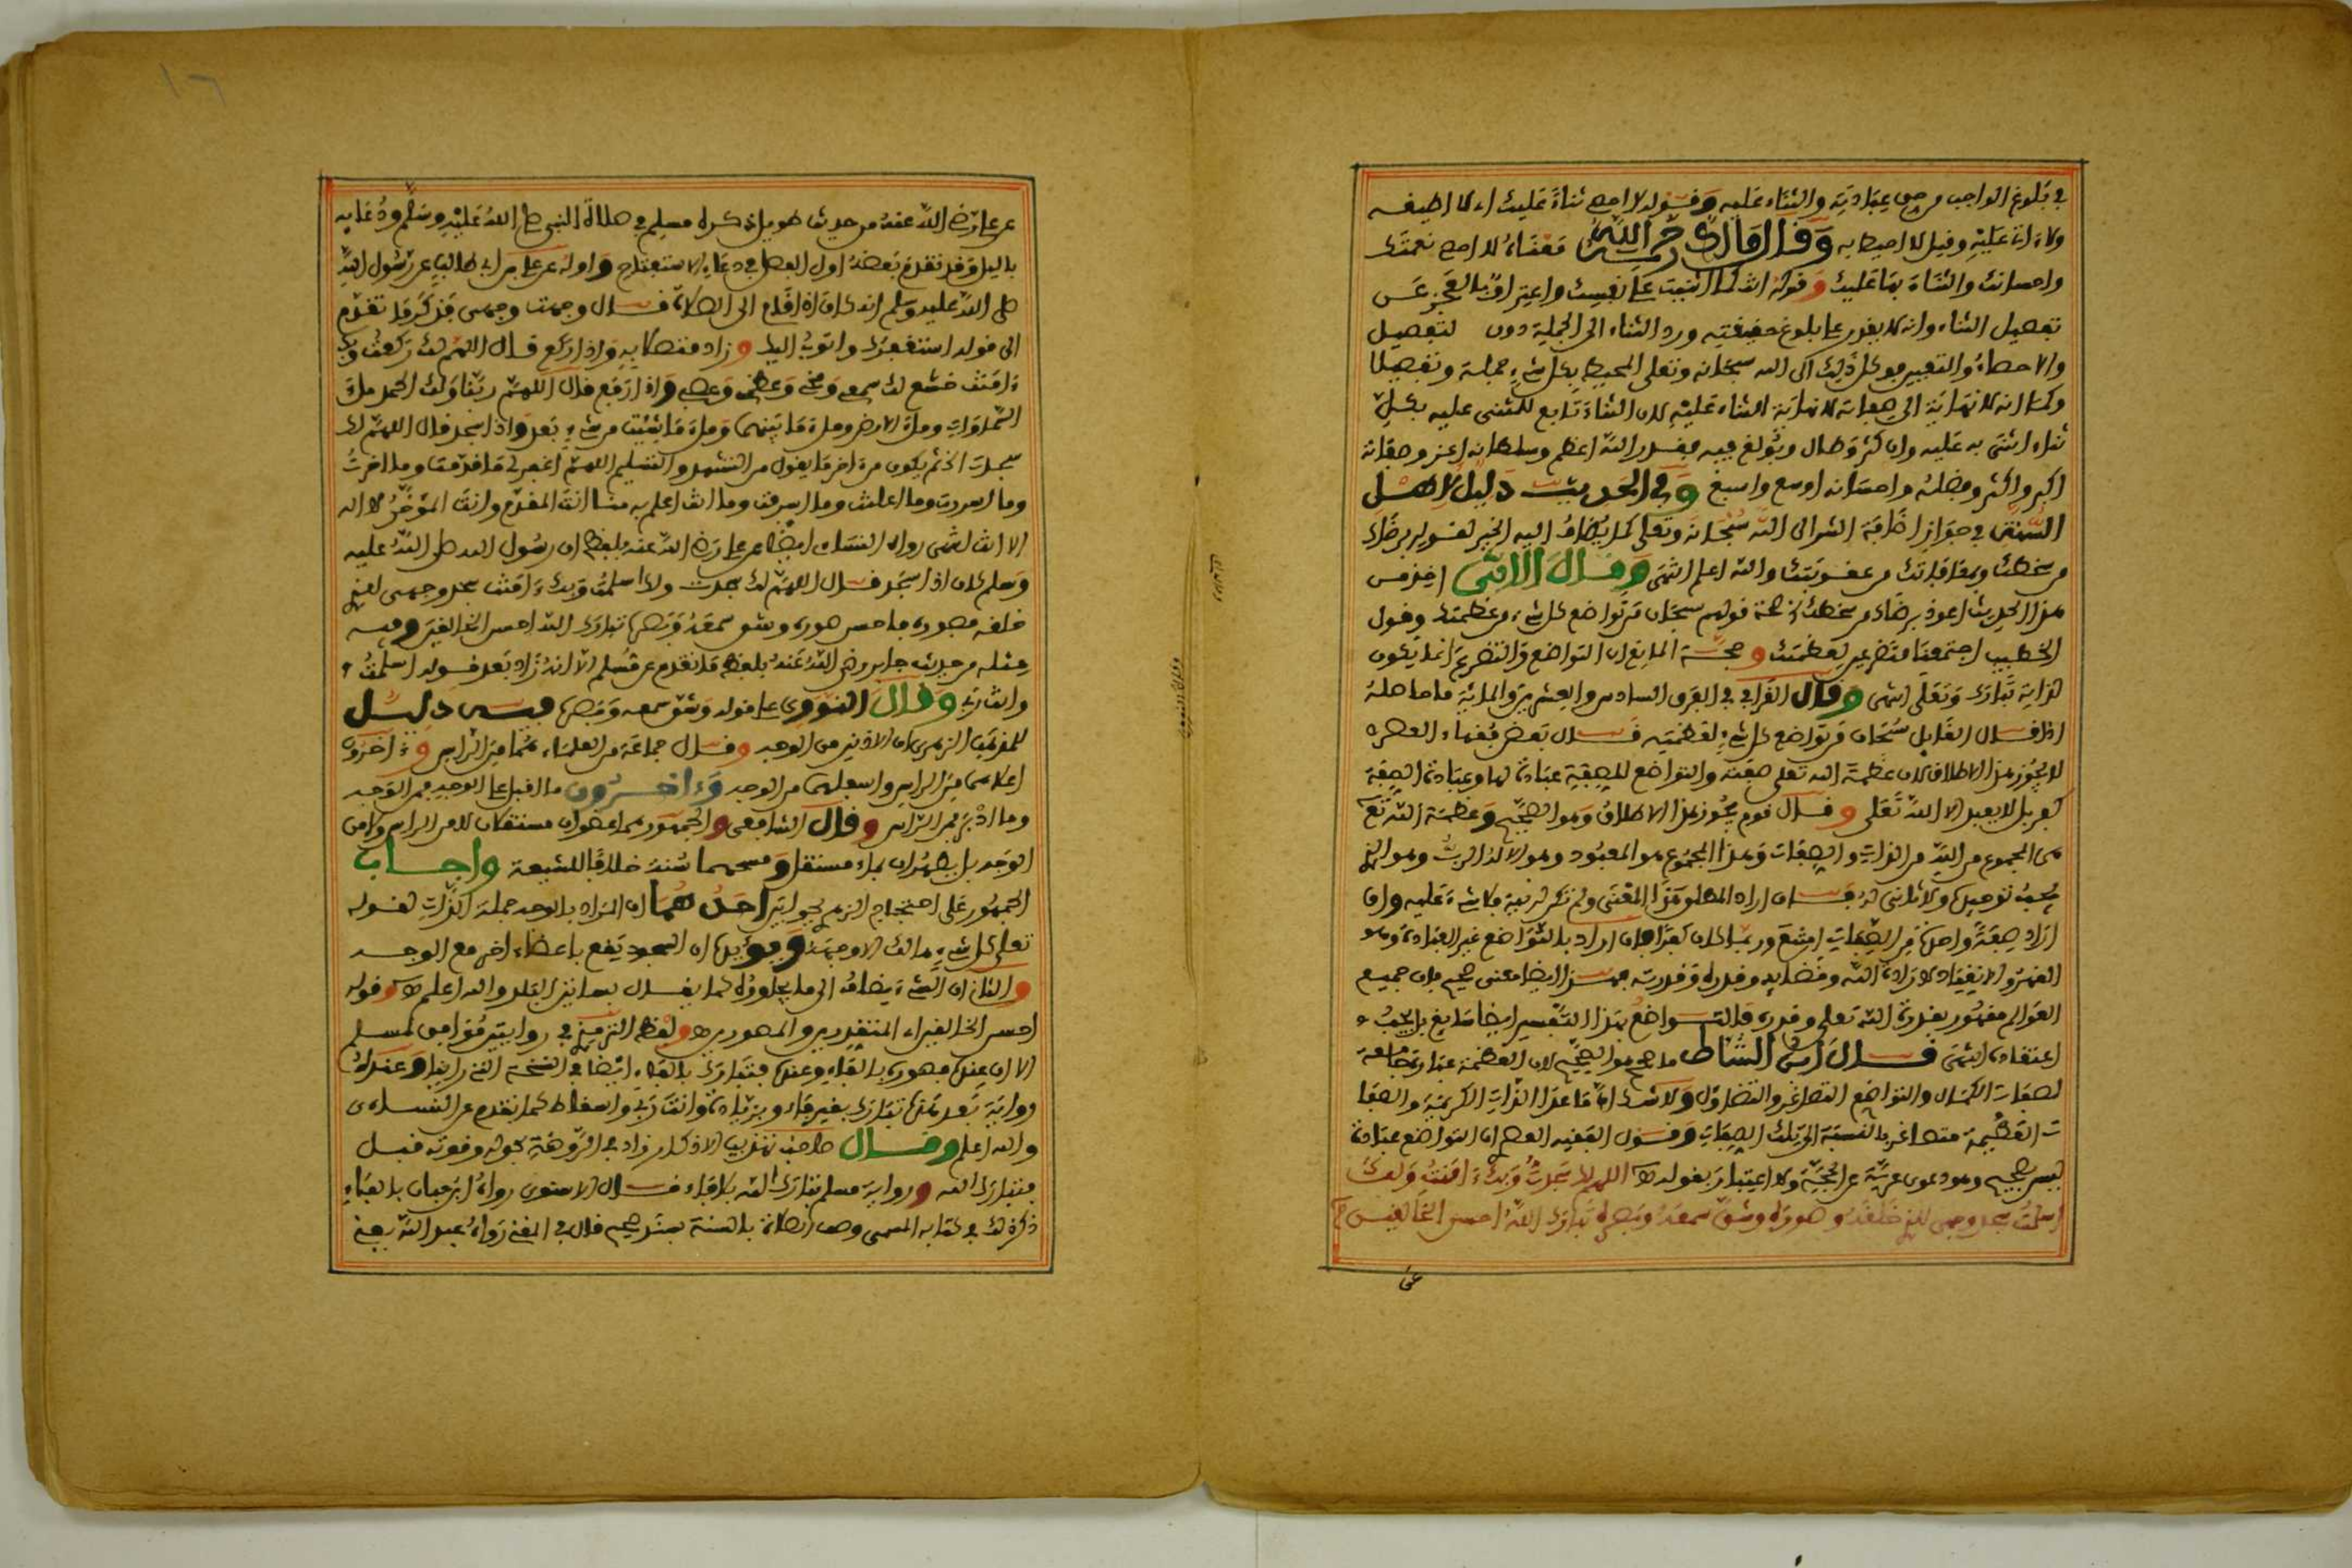 في بلوغ الواجب من حق عبادته والثناء عليه وقوله لا احصي ثناء عليك اي لا اطيقه
ولا اتي عليه وقيل لا احيط به وقال مالك رحمه الله معناه لا احصي نعمتك
واحسانك والثناء بها عليك وقوله انت كما اثنيت على نفسك واعتراف بالعجز عن
تفصيل الثناء وانه لا يقدر على بلوغ حقيقته ورد الثناء الى الجملة دون لتفصيل
والاحصاء والتعيين فوكل ذلك الى الله سبحانه وتعلى المحيط بكل شيء جملة وتفصيلا
وكما انه لا نهاية الى صفاته لا نهاية الثناء عليه لان الثناء تابع للمثنى عليه بكل
ثناء اثني به عليه وان كثر وطال وبولغ فيه فقدر الله اعظم وسلطانه اعز وصفاته
اكبر واكثر وفضله واحسانه اوسع واسبغ وفي الحديث دليل لاهل
السنة في جواز اضافة الشر الى الله سبحانه وتعلى كما يضاف اليه الخير لقوله برضاك
من سخطك وبمعافاتك من عقوبتك والله اعلم انتهى وقال الابي اخذ من
هذا الحديث اعوذ برضاك من سخطك صحة قولهم سبحان من تواضع كل شيء من عظمته وقول
الخطيب اجتمعنا متضرعين لعظمتك وحجة المانع ان التواضع والتضرع انما يكون
لذاته تبارك وتعلى انتهى وقال القرافي في الفرق السادس والعشرين والماية ما حاصله
اذا قال القايل سبحان من تواضع كل شيء لعظمته قال بعض فقهاء العصر
لا يجوز هذا الاطلاق لان عظمة الله تعلى صفته والتواضع للصفة عبادة لها وعبادة الصفة
كفر بل لا يعبد الا الله تعلى وقال قوم يجوز هذا الاطلاق وهو الصحيح وعظمة الله تع
هي المجموع من الذات والصفات وهذا المجموع هو المعبود وهو الاله الرب وهو الذي
يجب توحيده ولا ثاني له فان اراد المطلق هذا المعنى ولم تكن له نية فلا شيء عليه وان
اراد صفة واحدة من الصفات امتنع وربما كان كفرا فان اراد بالتواضع غير العبادة وهو
القهر والانقياد لارادة الله وقضايه وقدره وقدرته فهذا ايضا معنى صحيح فان جميع
العوالم مقهور بقدرة الله تعلى وقدره فالتواضع بهذا التفسير ايضا سايغ بل يجب
اعتقاده انتهى قال ابن الشاط ما صحح هو الصحيح لان العظمة عبارة جامعة
لصفات الكمال والتواضع التصاغر والتضاؤل ولا شك ان ما عدا الذات الكريمة والصفا
ت العظيمة متصاغر بالنسبة الى تلك الصفات وقول الفقيه العصري ان التواضع عبادة
ليس بصحيح وهو دعوى عرية عن الحجة ولا اعتبار بقوله اللهم لك سجدت وبك ءامنت ولك
اسلمت سجد وجهي للذي خلقه وصوره وشق سمعه وبصره تبارك الله احسن الخالقين
عن
عن علي رضي الله عنه من حديث طويل ذكره مسلم في صلاة النبي صلى الله عليه وسلم ودعايه
بالليل وقد تقدم بعضه اول الفصل في دعاء الاستفتاح واوله عن علي بن ابي طالب عن رسول الله
صلى الله عليه وسلم انه كان اذا قام الى الصلاة قال وجهت وجهي فذكر ما تقدم
الى قوله استغفرك واتوب اليك وزاد متصلا به واذا ركع قال اللهم لك ركعت وبك
ءامنت خشع لك سمعي ومخي وعظمي وعصبي واذا رفع قال اللهم ربنا ولك الحمد ملء
السماوات وملء الارض وملء ما بينهما وملء ما شئت من شيء بعد واذا سجد قال اللهم لك
سجدت الخ ثم يكون من ءاخر ما يقول من التشهد والتسليم اللهم اغفر لي ما قدمت وما اخرت
وما اسررت وما اعلنت وما اسرفت وما انت اعلم به منا انت المقدم وانت المؤخر لا اله
الا انت انتهى رواه النساءي ايضا عن علي رضي الله عنه بلفظ ان رسول الله صلى الله عليه
وسلم كان اذا سجد قال اللهم لك سجدت ولك اسلمت وبك ءامنت سجد وجهي للذي
خلقه فصوره فاحسن صوره وشق سمعه وبصره تبارك الله احسن الخالقين وفيه
مثله من حديث جابر رضي الله عنه بلفظ ما تقدم عن مسلم الا انه زاد بعد قوله اسلمت
وانت ربي وقال النووي على قوله وشق سمعه وبصره فيه دليل
لمذهب الزهري ان الاذنين من الوجه وقال جماعة من العلماء هما من الراس وءاخرون
اعلاهما من الراس واسفلهما من الوجه وءاخرون ما اقبل على الوجه فمن الوجه
وما ادبر فمن الراس وقال الشافعي والجمهور هما عضوان مستقلان لا من الراس ولا من
الوجه بل يطهران بماء مستقل ومسحهما سنة خلافا للشيعة واجاب
الجمهور على احتجاج الزهري بجوابين احدهما ان المراد بالوجه جملة الذات لقوله
تعلى كل شيء هالك الا وجهه ويؤيده ان السجود يقع باعضاء اخر مع الوجه
والثاني ان الشيء يضاف الى ما يجاوره كما يقال بساتين البلد والله اعلم وقوله
احسن الخالقين اي المقدرين والمصورين ولفظ الترمذي في روايتين موافق لمسلم
الا ان عنده فصوره بالفاء وعنده فتبارك بالفاء ايضا في النسخة التي رايتها وعنده
رواية بعد هذه تبارك بغير فاء وبزيادة وانت ربي واسقاط كما تقدم عن النساءي
والله اعلم وقال صاحب تهذيب الاذكار زاد في الروضة بحوله وقوته قبل
فتبارك الله ورواية مسلم تبارك الله بلا فاء قال الاسنوي رواه ابن حبان بالفاء
ذكر ذلك في كتابه المسمى وصف الصلاة بالسنة بسند صحيح قال في المغني رواه عبد الله يعني